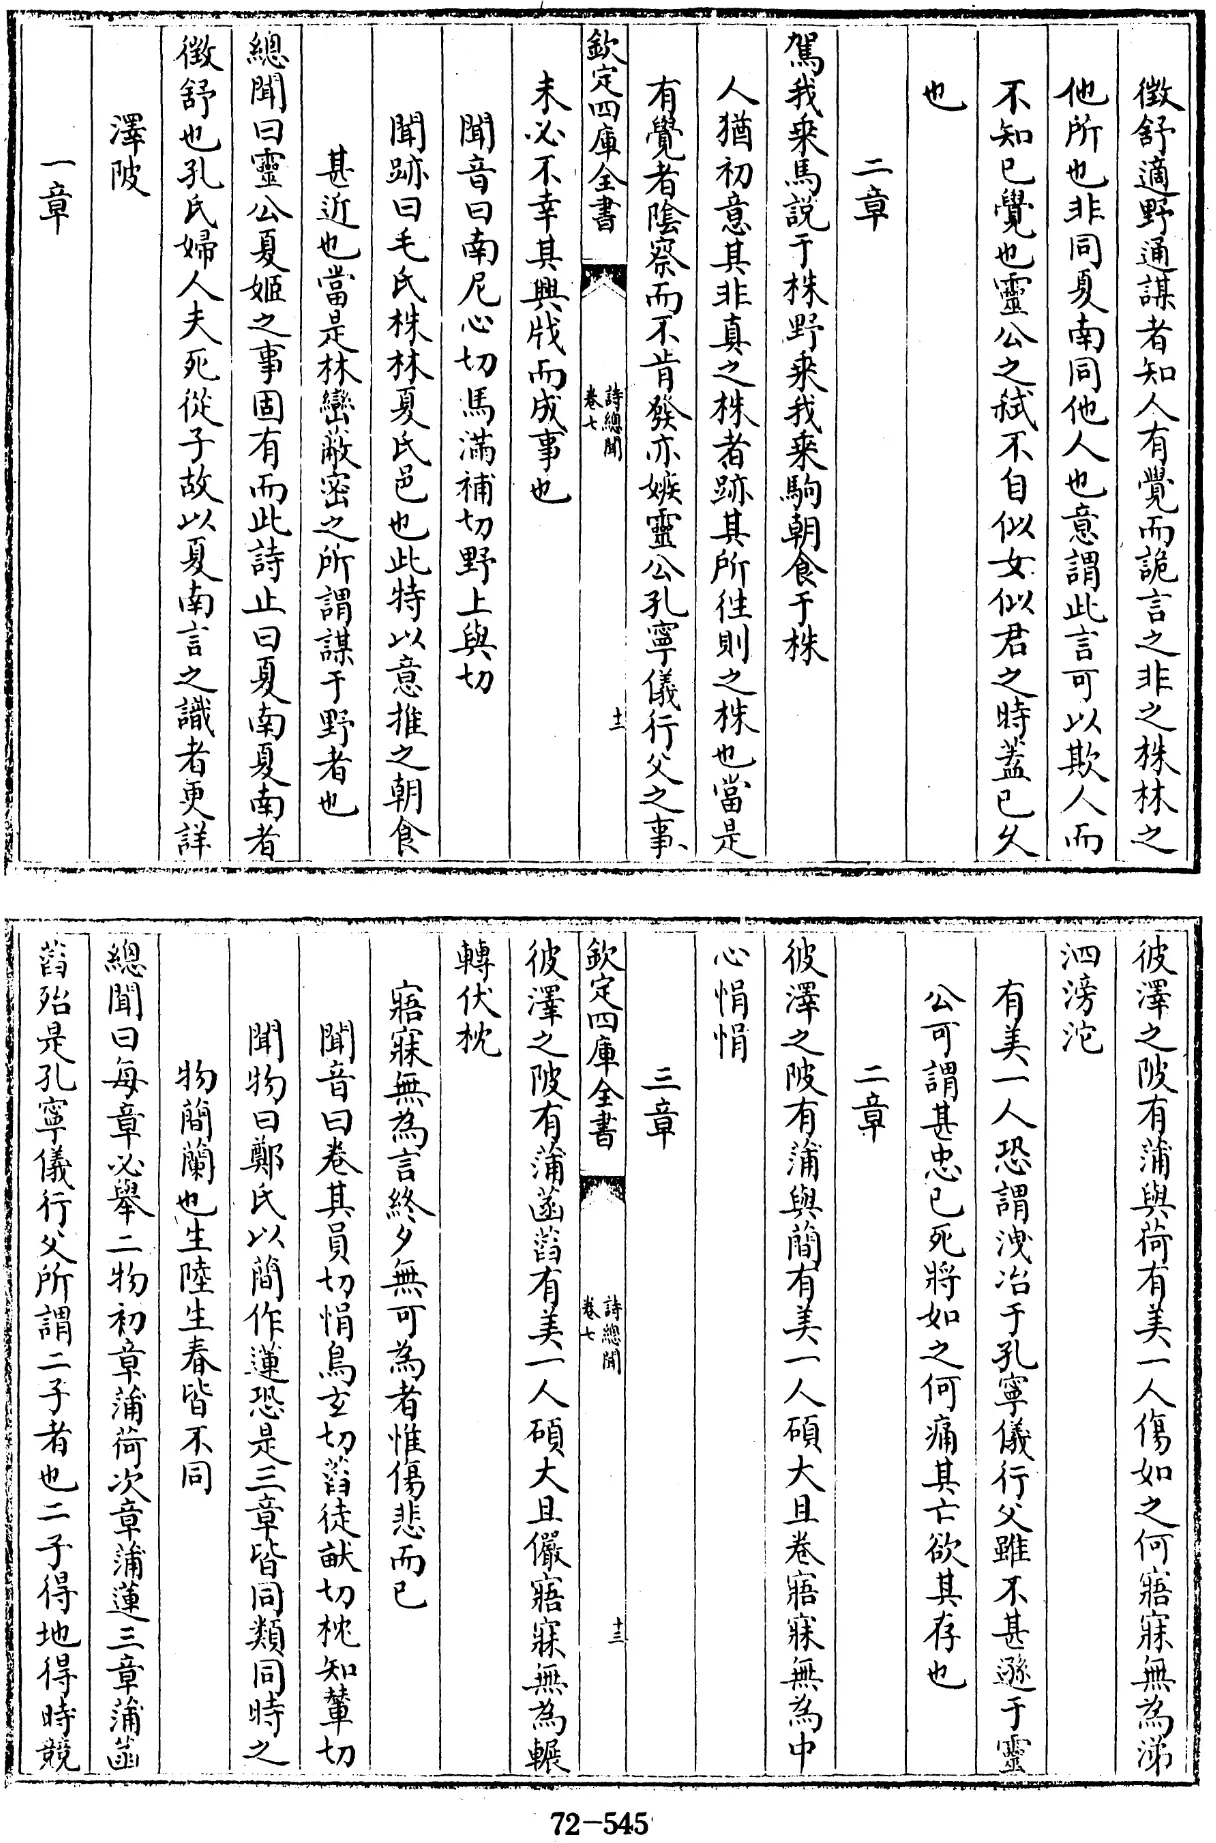 徵舒適野通謀者知人有覺而詭言之非之株林之
他所也非同夏南同他人也意謂此言可以欺人而
不知已覺也靈公之弑不自似女似君之時蓋已久
也
二章
駕我乘馬説于株野乘我乘駒朝食于株
人猶初意其非真之株者跡其所徃則之株也當是
有覺者陰察而不肯發亦嫉靈公孔寧儀行父之事
欽定四庫全書
詩總聞
卷七
十二
未必不幸其興戕而成事也
聞音曰南尼心切馬滿補切野上與切
聞跡曰毛氏株林夏氏邑也此特以意推之朝食
甚近也當是林巒蔽密之所謂謀于野者也
總聞曰靈公夏姬之事固有而此詩止曰夏南夏南者
徵舒也孔氏婦人夫死從子故以夏南言之識者更詳
澤陂
一章
彼澤之陂有蒲與荷有美一人傷如之何寤寐無為涕
泗滂沱
有美一人恐謂洩冶于孔寧儀行父雖不甚遜于靈
公可謂甚忠已死將如之何痛其亡欲其存也
二章
彼澤之陂有蒲與蕑有美一人碩大且卷寤寐無為中
心悁悁
三章
欽定四庫全書
詩總聞
卷七
十三
彼澤之陂有蒲菡萏有美一人碩大且儼寤寐無為輾
轉伏枕
寤寐無為言終夕無可為者惟傷悲而已
聞音曰卷其員切悁烏玄切萏徒猷切枕知輦切
聞物曰鄭氏以蕑作蓮恐是三章皆同類同時之
物蕑蘭也生陸生春皆不同
總聞曰每章必舉二物初章蒲荷次章蒲蓮三章蒲菡
萏殆是孔寧儀行父所謂二子者也二子得地得時競
72-545